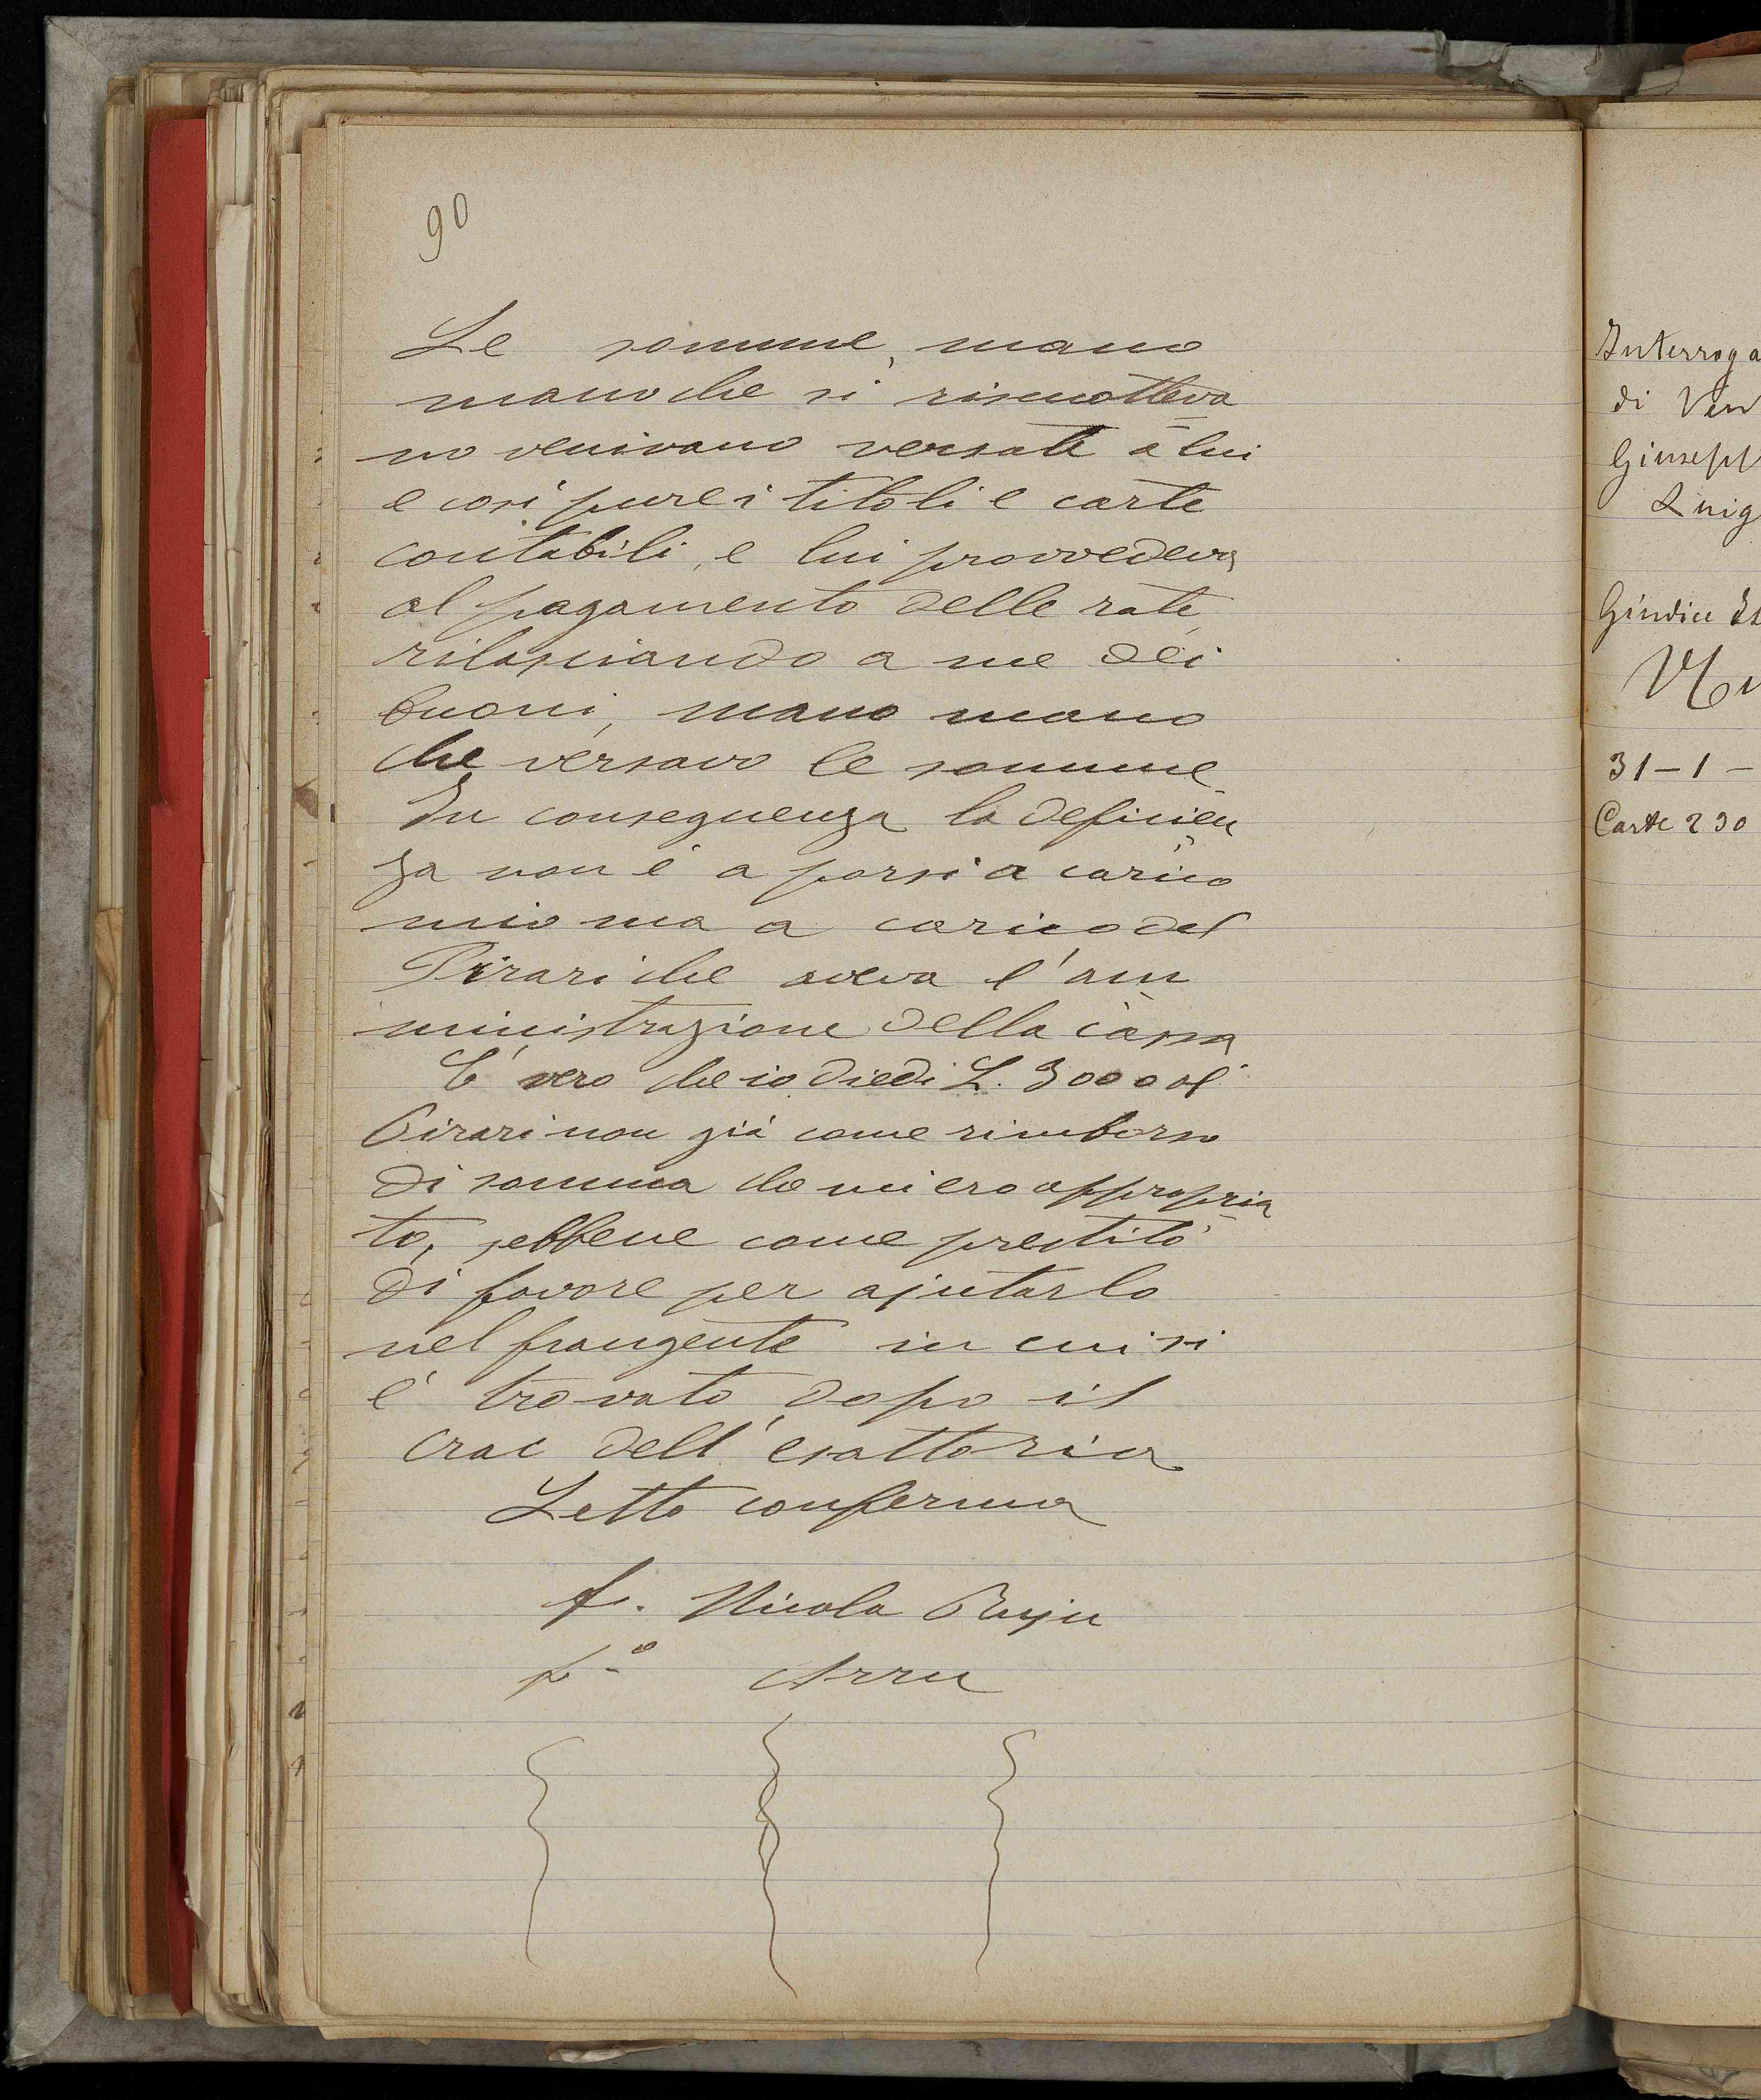 90
Le somme, mano
mano che si riscuotteva
no venivano versate a lui
e così pure i titoli e carte
contabili, e lui provvedeva
al pagamento delle rate,
rilasciando a me dei
buoni, mano mano
che versavo le somme
In conseguenza la deficien
za non é a porsi a carico
mio ma a carico del
Pirari che aveva l'am
ministrazione della cassa
E' vero che io diedi L. 3000 al
Pirari non già come rimborso
di somma che mi ero appropria
to, sebbene come prestito
di favore per ajutarlo
nel frangente in cui si
é trovato dopo il
crac dell'esattoria
Letto conferma
f. Nicola Ruju
fº Arru
Interroga
di Ven
Giusepp
Luig
Giudice Is
31-1-
Carte 290